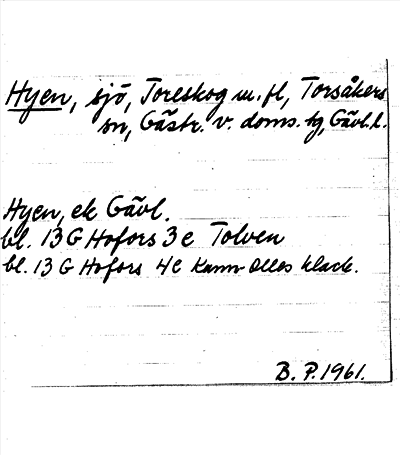 Hyen, sjö, Toreskog m. fl, Torsåkers
sn, Gästr. v. doms. tg, Gävl. l.
Hyen, ek Gävl.
bl. 13 G Hofors 3 e Tolven
bl. 13 G Hofors 4 e Kamm Olles klack.
B. P. 1961.